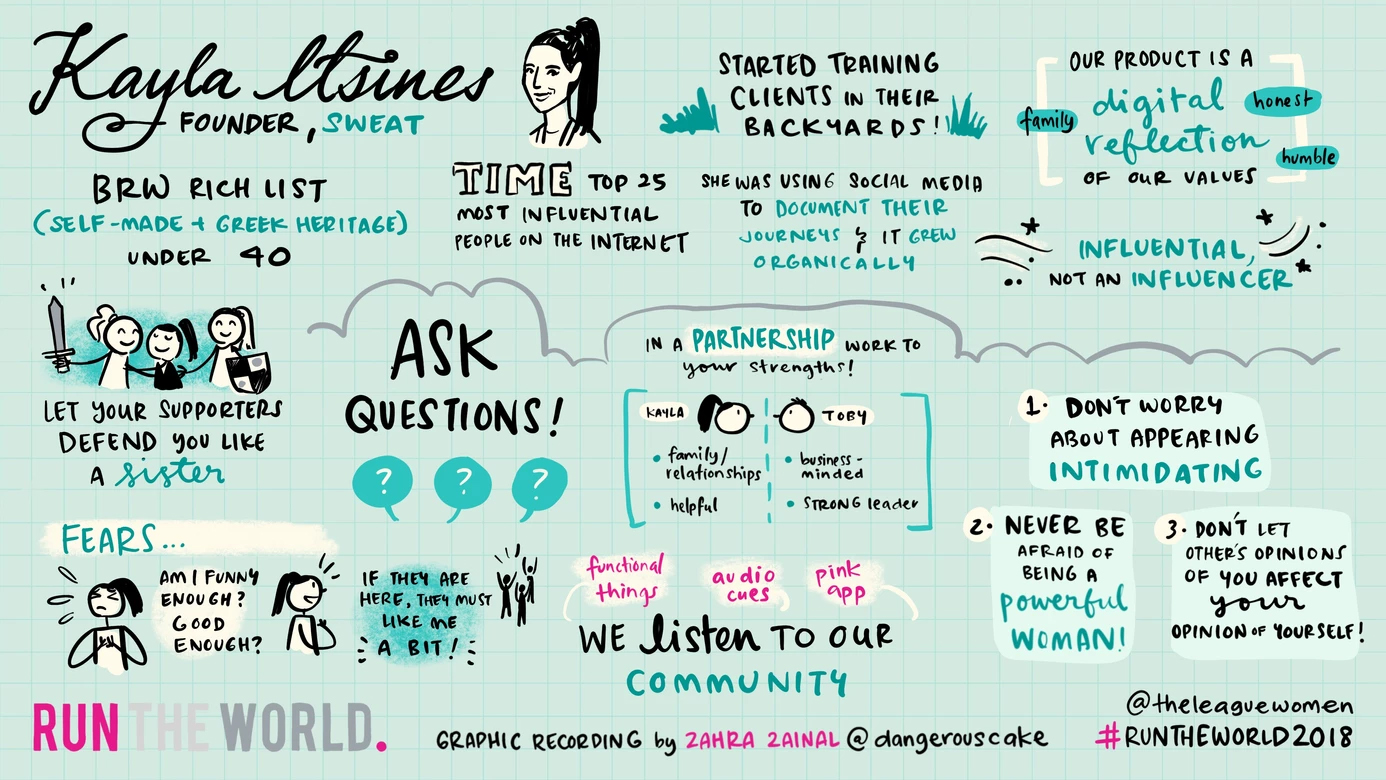 Kayla Itsines
FOUNDER, SWEAT
BRW RICH LIST
(SELF-MADE + GREEK HERITAGE)
UNDER 40
TIME TOP 25
MOST INFLUENTIAL
PEOPLE ON THE INTERNET
STARTED TRAINING
CLIENTS IN THEIR
BACKYARDS!
SHE WAS USING SOCIAL MEDIA
TO DOCUMENT THEIR
JOURNEYS & IT GREW
ORGANICALLY
OUR PRODUCT IS A
digital
reflection
OF OUR VALUES
family
honest
humble
INFLUENTIAL,
NOT AN INFLUENCER
LET YOUR SUPPORTERS
DEFEND YOU LIKE
A sister
ASK
QUESTIONS!
? ? ?
IN A PARTNERSHIP WORK TO
your strengths!
KAYLA
• family/
relationships
• helpful
TOBY
• business-
minded
• STRONG leader
1. DON'T WORRY
ABOUT APPEARING
INTIMIDATING
2. NEVER BE
AFRAID OF
BEING A
powerful
WOMAN!
3. DON'T LET
OTHER'S OPINIONS
OF YOU AFFECT
your
OPINION OF YOURSELF!
FEARS...
AM I FUNNY
ENOUGH?
GOOD
ENOUGH?
IF THEY ARE
HERE, THEY MUST
LIKE ME
A BIT!
functional
things
audio
cues
pink
app
WE listen TO OUR
COMMUNITY
RUN THE WORLD.
GRAPHIC RECORDING by ZAHRA ZAINAL @dangerouscake
@theleaguewomen
#RUNTHEWORLD2018